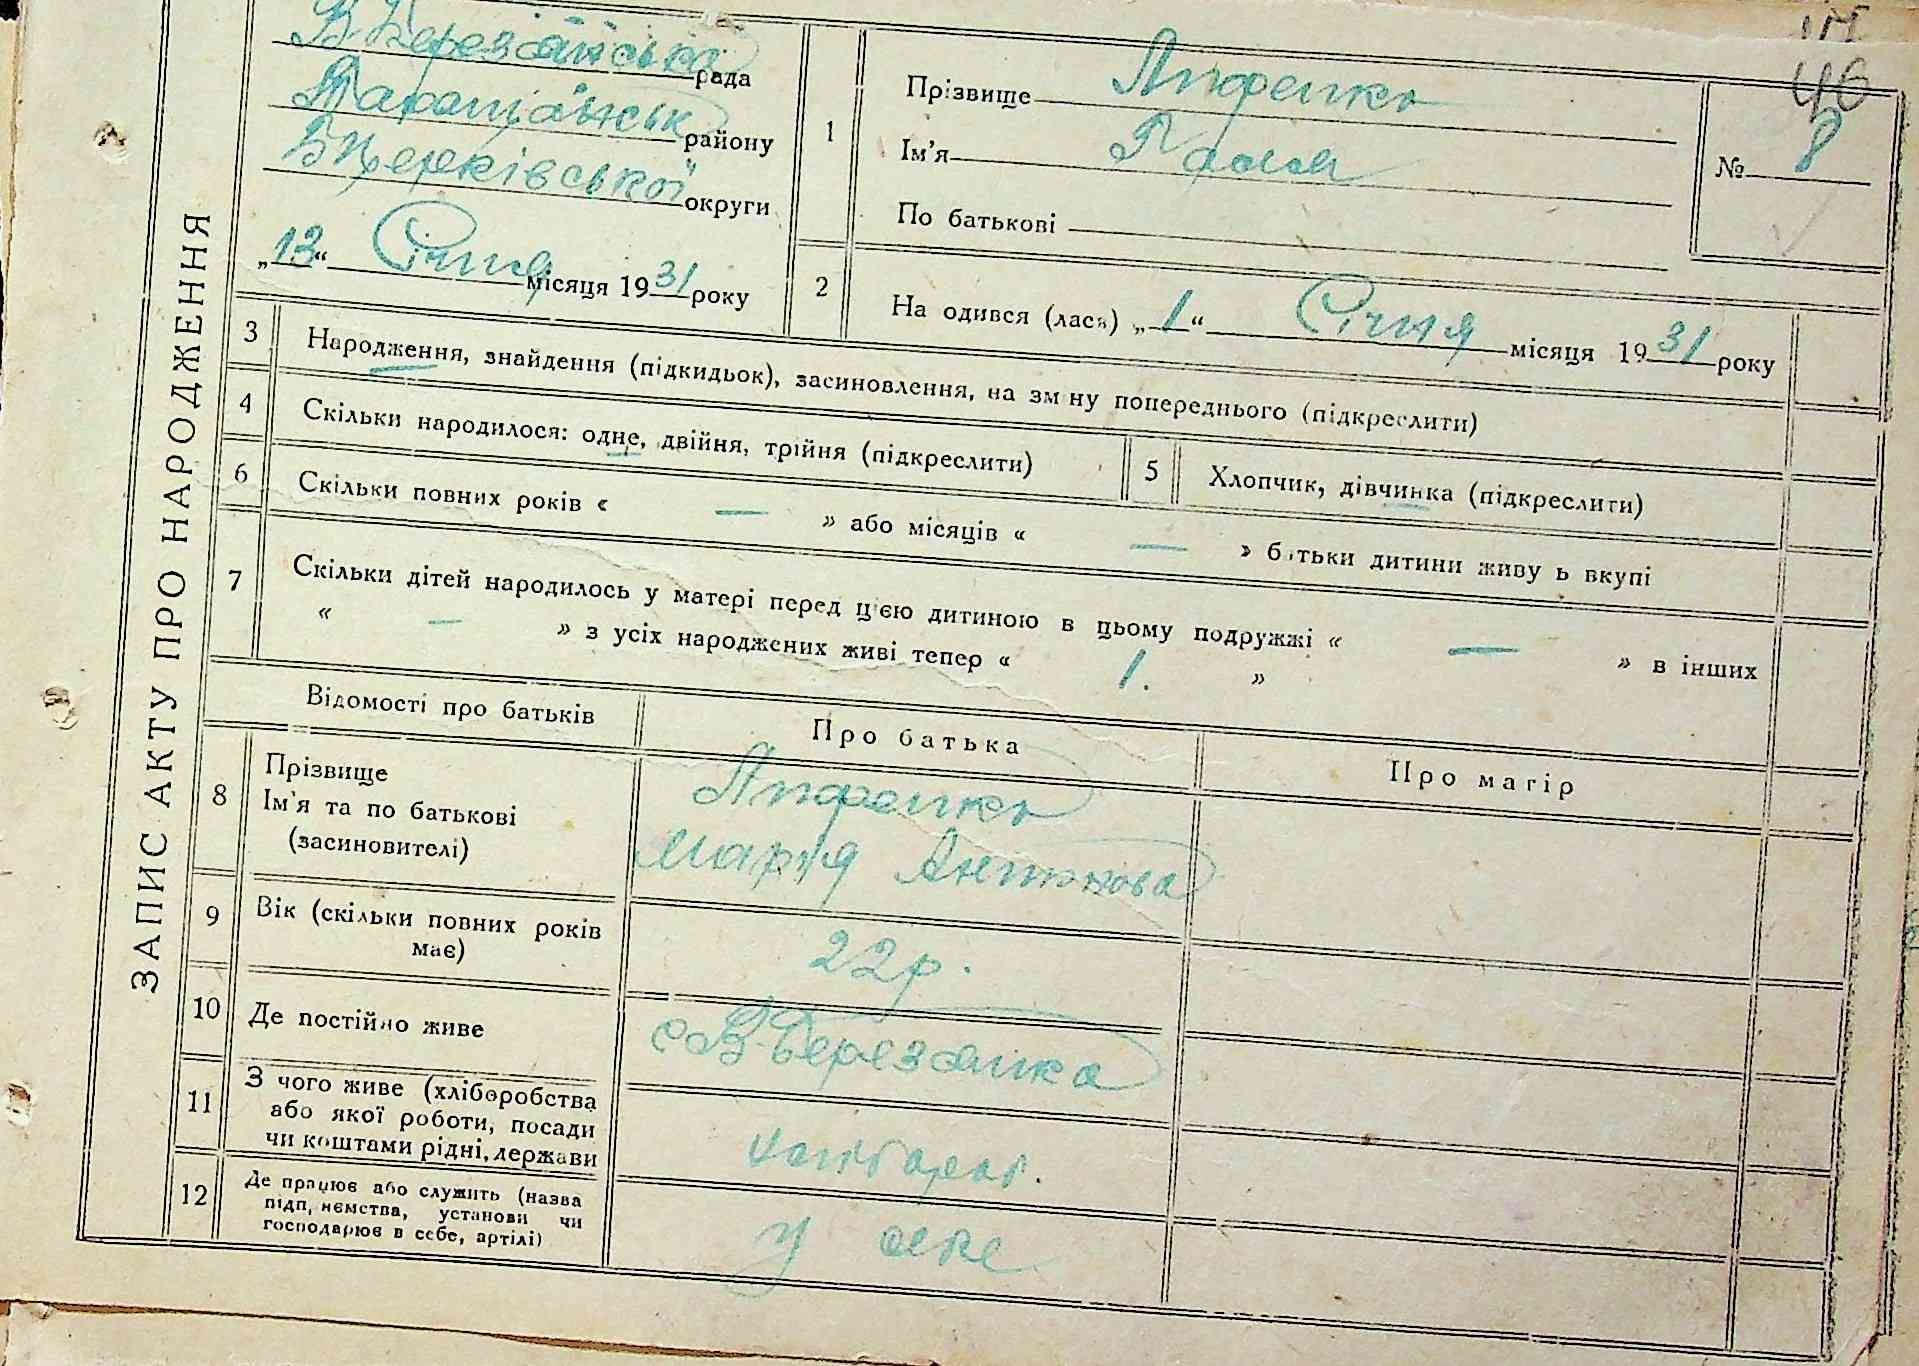 ЗАПИС АКТУ ПРО НАРОДЖЕННЯ
46
В-Березанська рада
Таращанськ району
Б Церківської округи
„13“ Січня місяця 1931 року
1
Прізвище
Ім'я Галя
По батькові
№ 8
2
На одився (лася) „1“ Січня місяця 1931 року
3 Народження, знайдення (підкидьок), засиновлення, на зм ну попереднього (підкреслити)
4 Скільки народилося: одне, двійня, трійня (підкреслити)
5 Хлопчик, дівчинка (підкреслити)
6 Скільки повних років « — » або місяців « — » батьки дитини живу ь вкупі
7 Скільки дітей народилось у матері перед цією дитиною в цьому подружжі « — » в інших
« — » з усіх народжених живі тепер « 1. »
Відомості про батьків
Про батька
Про матір
8 Прізвище
Ім'я та по батькові
(засиновителі)
Марія Антонова
9 Вік (скільки повних років має)
22р.
10 Де постійно живе
с В-Березанка
11 З чого живе (хліборобства
або якої роботи, посади
чи коштами рідні, держави
12 Де працює або служить (назва
підп, иємства, установи чи
господарює в себе, артілі)
у